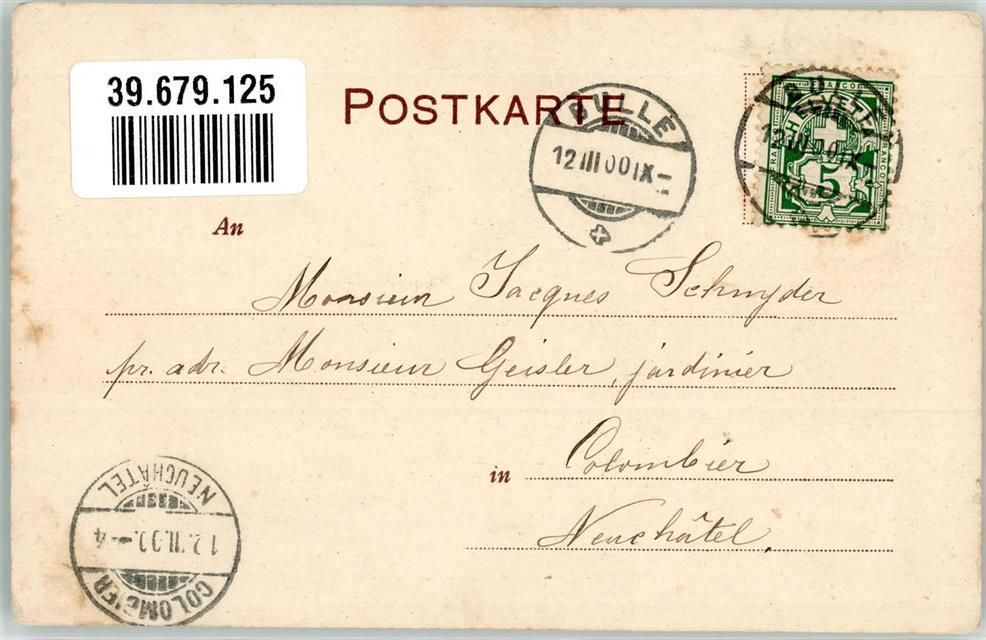 39.679.125
POSTKARTE
BULLE
12 III 00 IX
HELVETIA
FRANCO
5
An
Monsieur Jacques Schnyder
pr. adr. Monsieur Geisler, jardinier
in Colombier
Neuchâtel.
NEUCHÂTEL
12.III.00.-4
COLOMBIER